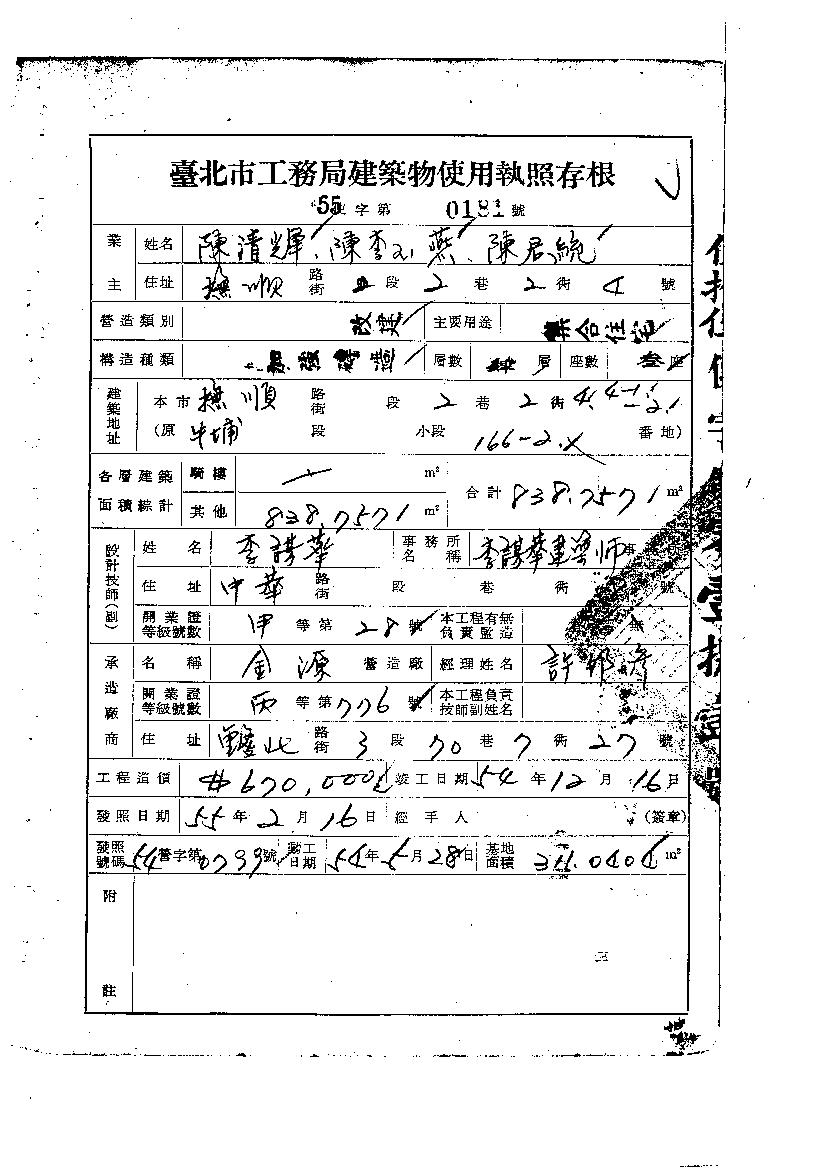 臺北市工務局建築物使用執照存根
55 使字第 0181 號
業主 姓名 陳清輝、陳李玉燕、陳君統
住址 撫順 路街 段 2 巷 2 衖 4 號
營造類別 改建 主要用途 集合住宅
構造種類 加強磚造 層數 肆層 座數 叁座
建築地址 本市 撫順 路街 段 2 巷 2 衖 4.4-1.4-2.1
(原 牛埔 段 小段 166-2 番地)
各層建築面積綜計 騎樓 m² 合計 838.7571 m²
其他 838.7571 m²
設計技師(副) 姓名 李謀華 事務所名稱 李謀華建築師事
住址 中華 路街 段 巷 衖 號
開業證等級號數 甲 等第 28 號 本工程有無負責監造 無
承造廠商 名稱 金源 營造廠 經理姓名 許
開業證等級號數 丙 等第 776 號 本工程負責技師副姓名
住址 重慶北 路街 3 段 70 巷 7 衖 27 號
工程造價 #670,000 竣工日期 54 年 12 月 16 日
發照日期 55 年 2 月 16 日 經手人 (簽章)
發照號碼 54 營字第 0799 號 動工日期 54 年 5 月 28 日 基地面積 311.0404 m²
附
註